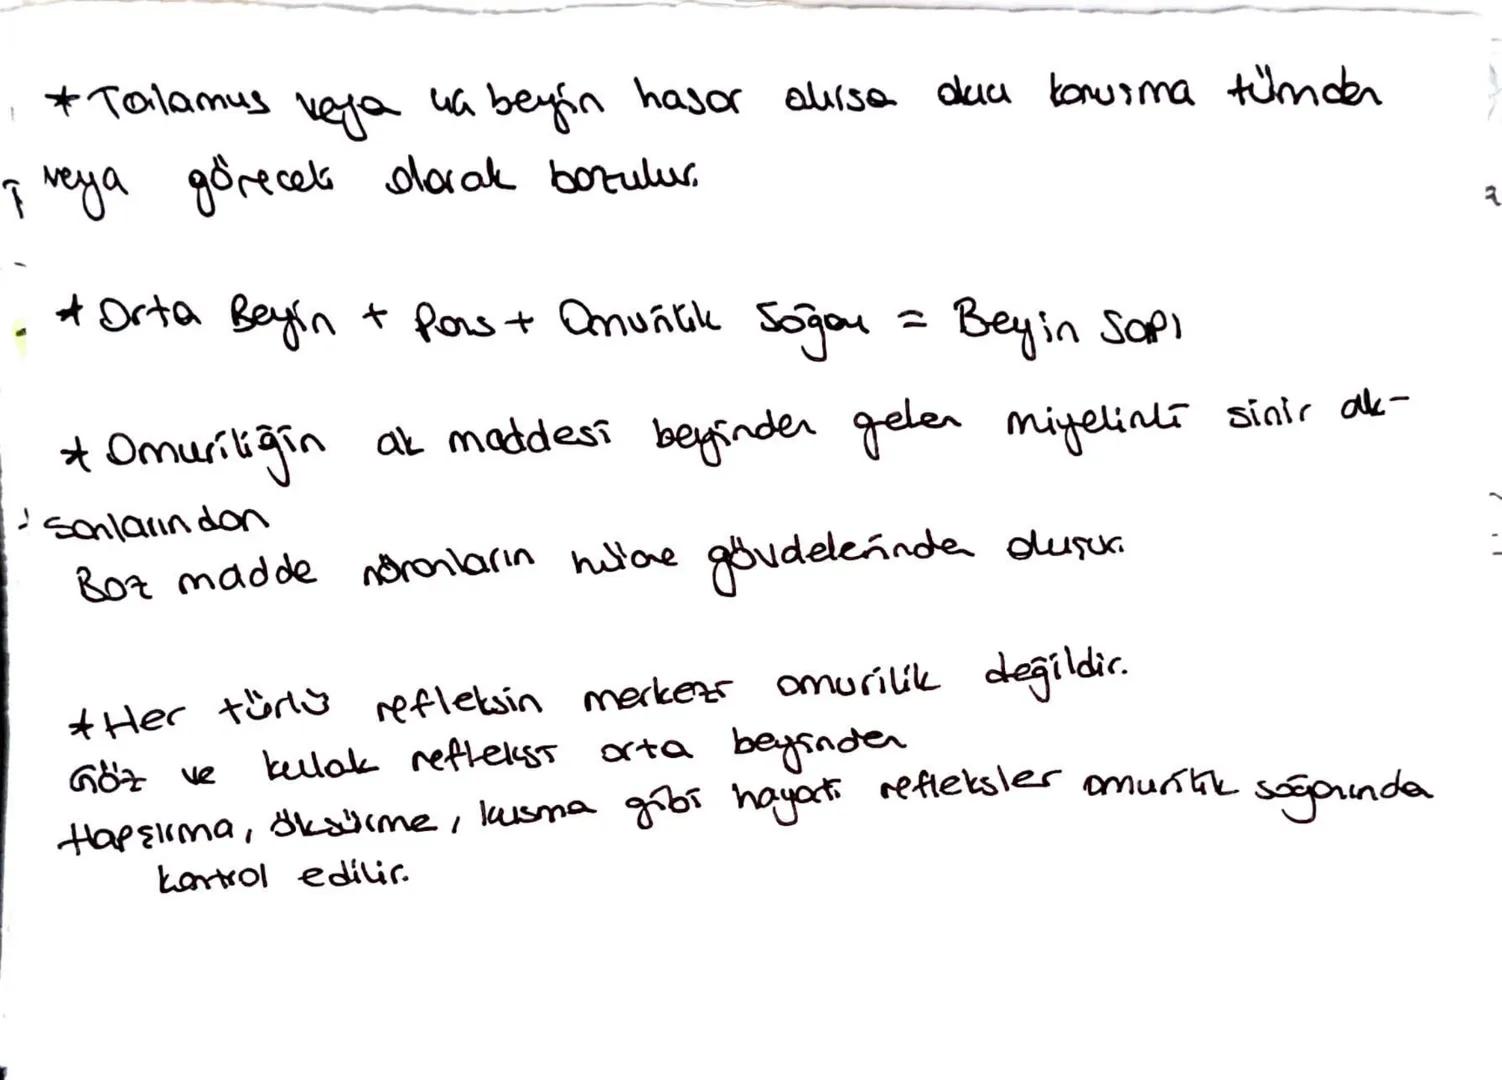 * Talamus veya uç beyin hasar alırsa duyu konuşma tümden
veya göreceli olarak bozulur.
* Orta Beyin + Pons + Omurilik Soğanı = Beyin Sapı
* Omuriliğin ak maddesi beyinden gelen miyelinli sinir ak-
sonlarından
Boz madde nöronların hücre gövdelerinden oluşur.
* Her türlü refleksin merkezi omurilik değildir.
Göz ve kulak refleksi orta beyinden
Hapşırma, öksürme, kusma gibi hayati refleksler omurilik soğanından
kontrol edilir.